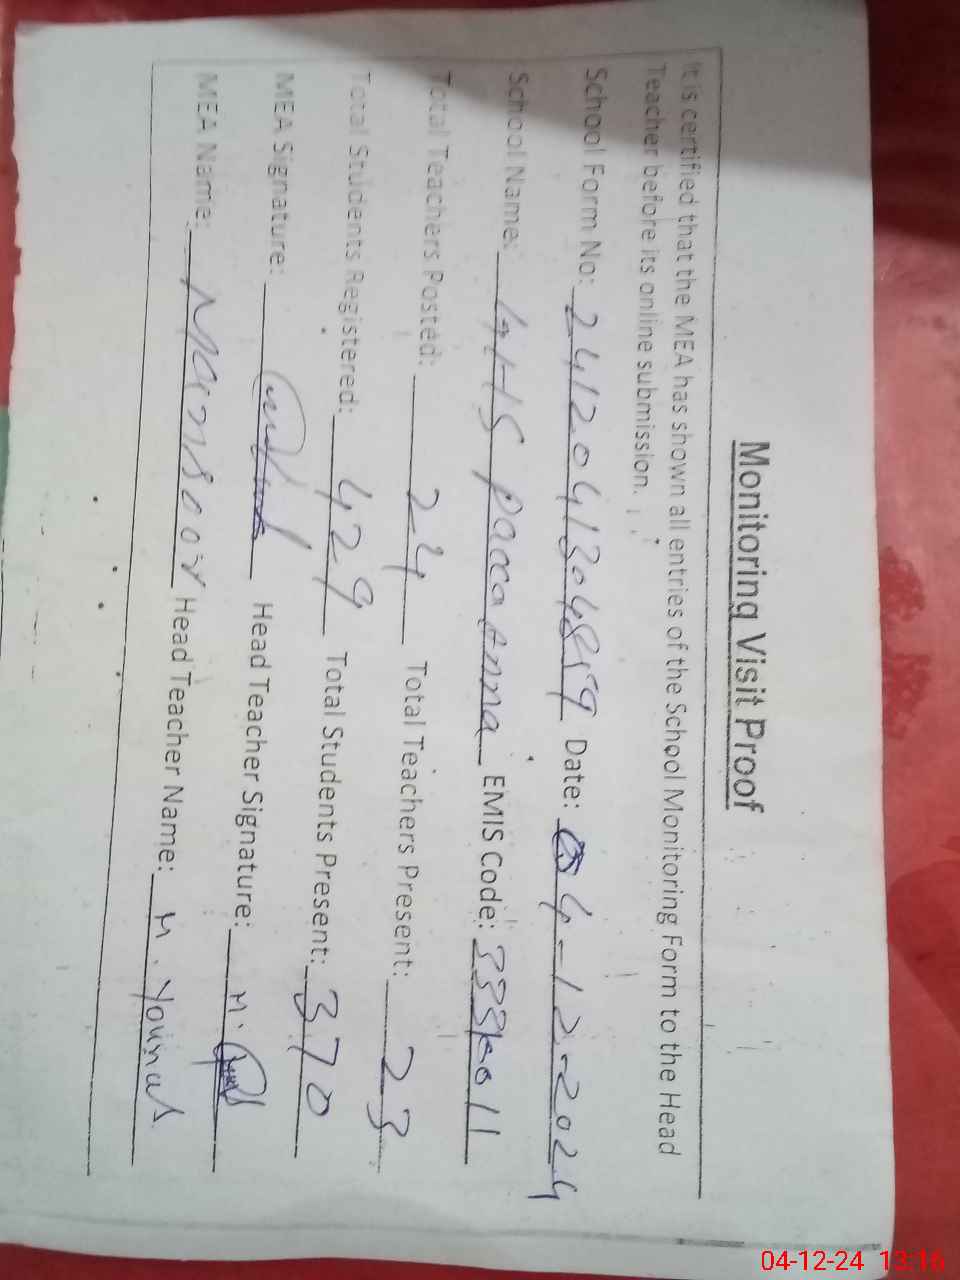 Monitoring Visit Proof
It is certified that the MEA has shown all entries of the School Monitoring Form to the Head
Teacher before its online submission.
School Form No: Date: 04-12-2024
School Name: GHS pacca anna EMIS Code:
Total Teachers Posted: 24 Total Teachers Present: 23
Total Students Registered: 429 Total Students Present: 370
MEA Signature: Head Teacher Signature: M.
MEA Name: Mansoor Head Teacher Name: M. Younas
04-12-24 13:16